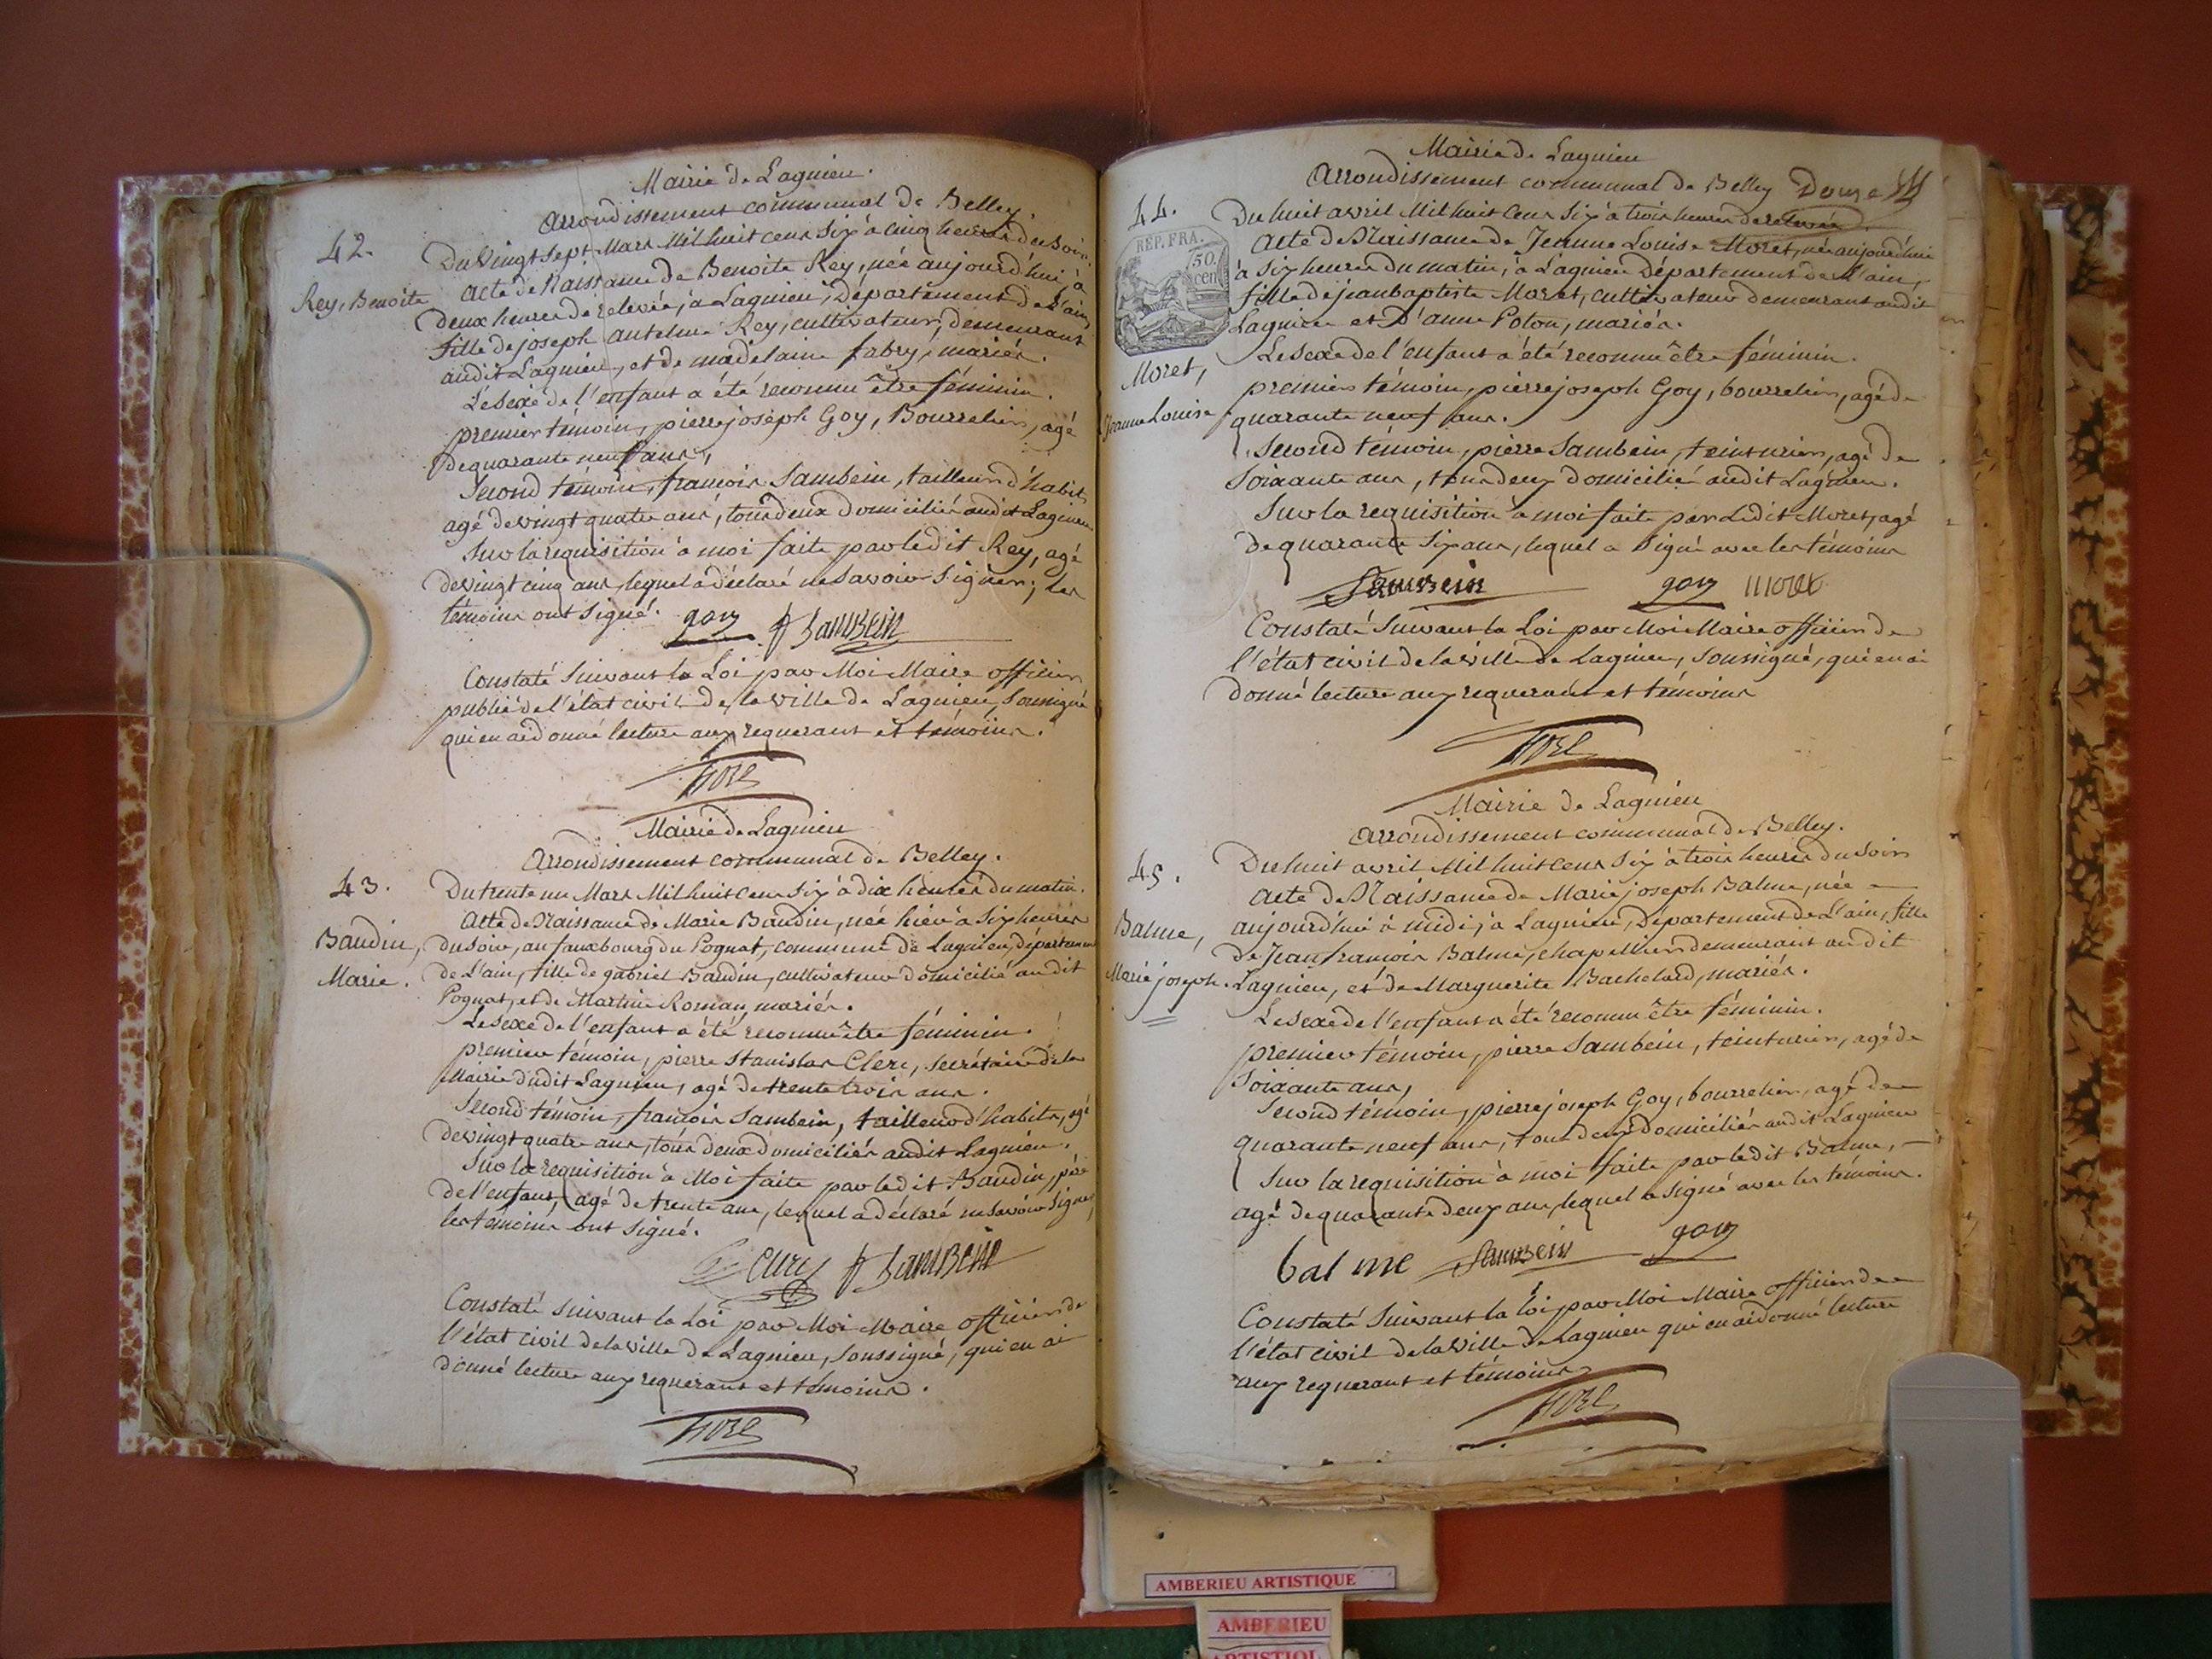 Mairie de Lagnieu.
Arrondissement communal de Belley.
42.
Du Vingt Sept Mars Mil huit cens Six à cinq heures du Soir.
Rey, Benoite
Acte de Naissance de Benoite Rey, née aujourd'hui, à
deux heures de relevée, à Lagnieu, Département de L'ain,
fille de joseph antelme Rey, cultivateur, demeurant
audit Lagnieu, et de madelaine fabry, mariés.
Le Sexe de l'enfant a été reconnu être féminin.
premier témoin, pierre joseph Goy, Bourrelier, agé
de quarante neuf ans,
Second témoin, francois Sambein, tailleur d'habits
agé de vingt quatre ans, tous deux domiciliés audit Lagnieu
Sur la requisition à moi faite par ledit Rey, agé
de vingt cinq ans, lequel a déclaré ne Savoir Signer; les
témoins ont signé. goy f Sambein
Constaté Suivant la Loi par Moi Maire officier
public de l'état civil de la ville de Lagnieu, Soussigné
qui en ai donné lecture aux requerant et témoins.
Mairie de Lagnieu
Arrondissement communal de Belley.
43.
Du trente un Mars Mil huit cens Six à dix heures du matin.
Baudin,
Marie.
Acte de Naissance de Marie Baudin, née hier à Six heures
du soir, au fauxbourg du Pognat, commune de Lagnieu, département
de L'ain, fille de gabriel Baudin, cultivateur domicilié audit
Pognat, et de Martine Roman, mariés.
Le Sexe de l'enfant a été reconnu être féminin.
premier témoin, pierre stanislas Clerc, secrétaire de la
Mairie dudit Lagnieu, agé de trente trois ans.
Second témoin, francois Sambein, tailleur d'habits, agé
de vingt quatre ans, tous deux domiciliés audit Lagnieu.
Sur la requisition à Moi faite par ledit Baudin, père
de l'enfant, agé de trente ans, lequel a déclaré ne savoir signer,
les témoins ont signé.
Clerc f Sambein
Constaté suivant la Loi par Moi Maire officier de
l'état civil de la ville de Lagnieu, soussigné, qui en ai
donné lecture aux requerant et témoins.
Mairie de Lagnieu
Arrondissement communal de Belley Douze
44.
REP. FRA.
750.
cen
Du huit avril Mil huit cens Six à trois heures de relevée.
Acte de Naissance de Jeanne Louise Moret, née aujourd'hui
à Six heures du matin, à Lagnieu Département de L'ain,
fille de jean baptiste Moret, cultivateur demeurant audit
Lagnieu et D'anne Poton, mariés.
Moret,
Jeanne Louise
Le Sexe de l'enfant a été reconnu être féminin.
premier témoin, pierre joseph Goy, bourrelier, agé de
quarante neuf ans.
Second témoin, pierre Sambein, teinturier, agé de
Soixante ans, tous deux domiciliés audit Lagnieu.
Sur la requisition à moi faite par Ledit Moret, agé
de quarante Six ans, lequel a signé avec les témoins
Sambein goy moret
Constaté Suivant la Loi par Moi Maire officier de
l'état civil de la ville de Lagnieu, Soussigné, qui en ai
donné lecture aux requerant et témoins
Mairie de Lagnieu
Arrondissement communal de Belley.
45.
Du huit avril Mil huit cens Six à trois heures du soir
Balme,
Marie joseph.
Acte de Naissance de Marie joseph Balme, née
aujourd'hui à midi, à Lagnieu, Département de L'ain, fille
de Jean francois Balme, chapellier demeurant audit
Lagnieu, et de Marguerite Bachelard, mariés.
Le Sexe de l'enfant a été reconnu être féminin.
premier témoin, pierre Sambein, teinturier, agé de
Soixante ans,
Second témoin, pierre joseph Goy, bourrelier, agé de
quarante neuf ans, tous deux domiciliés audit Lagnieu
Sur la requisition à moi faite par ledit Balme,
agé de quarante deux ans, lequel a signé avec les témoins.
balme Sambein goy
Constaté Suivant la Loi par Moi Maire officier de
l'état civil de la ville de Lagnieu qui en ai donné lecture
aux requerant et témoins
AMBERIEU ARTISTIQUE
AMBERIEU